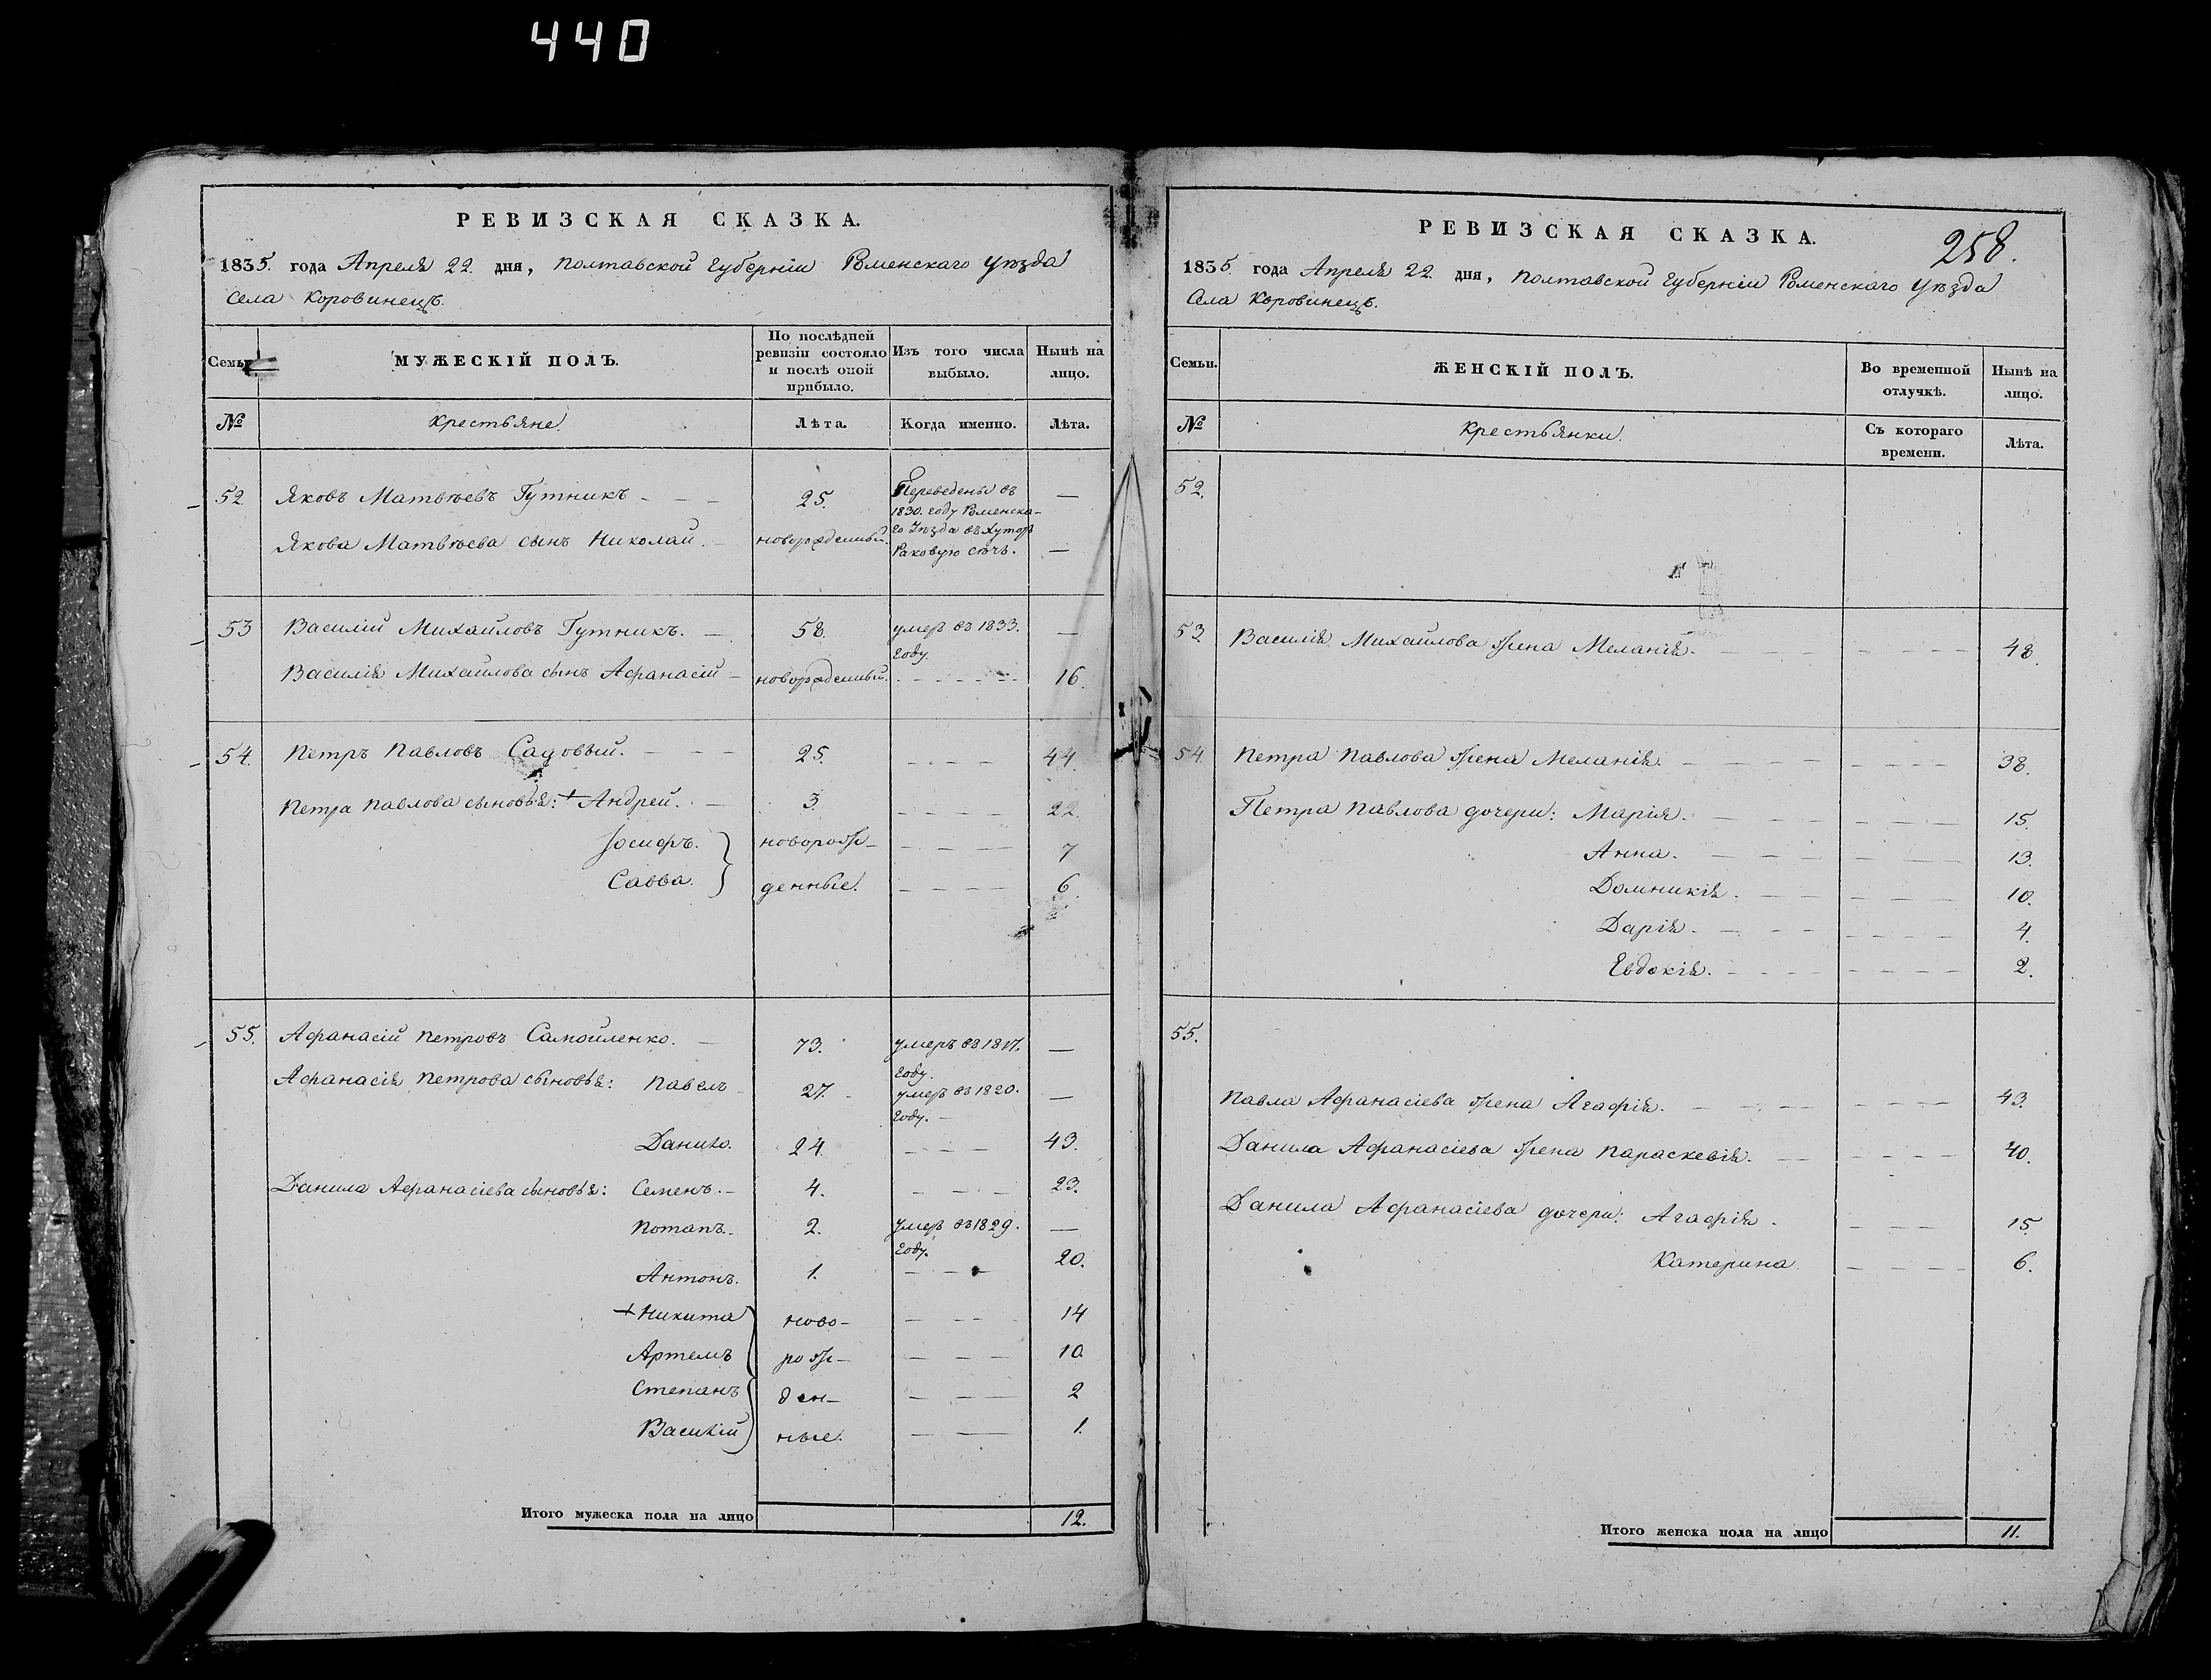 440
РЕВИЗСКАЯ СКАЗКА.
1835. года Апреля 22. дня, Полтавской Губерніи Роменскаго Уѣзда
Села Коровинецъ.
Семьи
МУЖЕСКІЙ ПОЛЪ.
По послѣдней ревизіи состояло и послѣ оной прибыло.
Изъ того числа выбыло.
Нынѣ на лицо.
№
Крестьяне.
Лѣта.
Когда именно.
Лѣта.
52. Яковъ Матвѣевъ Гутникъ - - - 25. Переведены въ —
1830. году Роменска-
Якова Матвѣева сынъ Николай. - новорожденный. го Уѣзда въ Хуторъ
Раковую сѣчь. —
53 Василій Михайловъ Гутникъ. — 58. умеръ въ 1833. —
году.
Василія Михайлова сынъ Афанасій - новорожденный. - - - - - - 16.
54. Петръ Павловъ Садовый. - - - 25. - - - - 44.
Петра Павлова сыновья: + Андрей. - 3. - - - - 22.
Іосифъ. } новорож- - - - - 7
Савва. } денные. - - - - 6.
55. Афанасій Петровъ Самойленко. - 73. умеръ въ 1817. —
году.
Афанасія Петрова сыновья: Павелъ - 27. - умеръ въ 1820. —
году. -
Данило. 24. - - - 43.
Данила Афанасіева сыновья: Семенъ. - 4. - - - 23.
Потапъ. - 2. умеръ въ 1829. —
году.
Антонъ. 1. - - - 20.
+ Никита } ново- - - - 14
Артемъ } рож- - - - 10.
Степанъ } ден- - - - 2
Василій } ные. - - 1.
Итого мужеска пола на лицо 12.
258.
РЕВИЗСКАЯ СКАЗКА.
1835. года Апреля 22. дня, Полтавской Губерніи Роменскаго Уѣзда
Села Коровинецъ.
Семьи.
ЖЕНСКІЙ ПОЛЪ.
Во временной отлучкѣ.
Нынѣ на лицо.
№
Крестьянки.
Съ котораго времени.
Лѣта.
52.
53. Василія Михайлова жена Меланія. - - - - - - - 48.
54. Петра Павлова жена Меланія. - - - - - - - - 38.
Петра Павлова дочери: Марія. - - - - - - - 15.
Анна. - - - - - - 13.
Домникія. - - - - - - 10.
Дарія. - - - - - - - 4.
Евдокія. - - - - - - - - 2.
55.
Павла Афанасіева жена Агафія. - - - - - - - 43.
Данила Афанасіева жена Параскевія. - - - - - 40.
Данила Афанасіева дочери: Агафія. - - - 15.
Катерина. - - - - 6.
Итого женска пола на лицо 11.